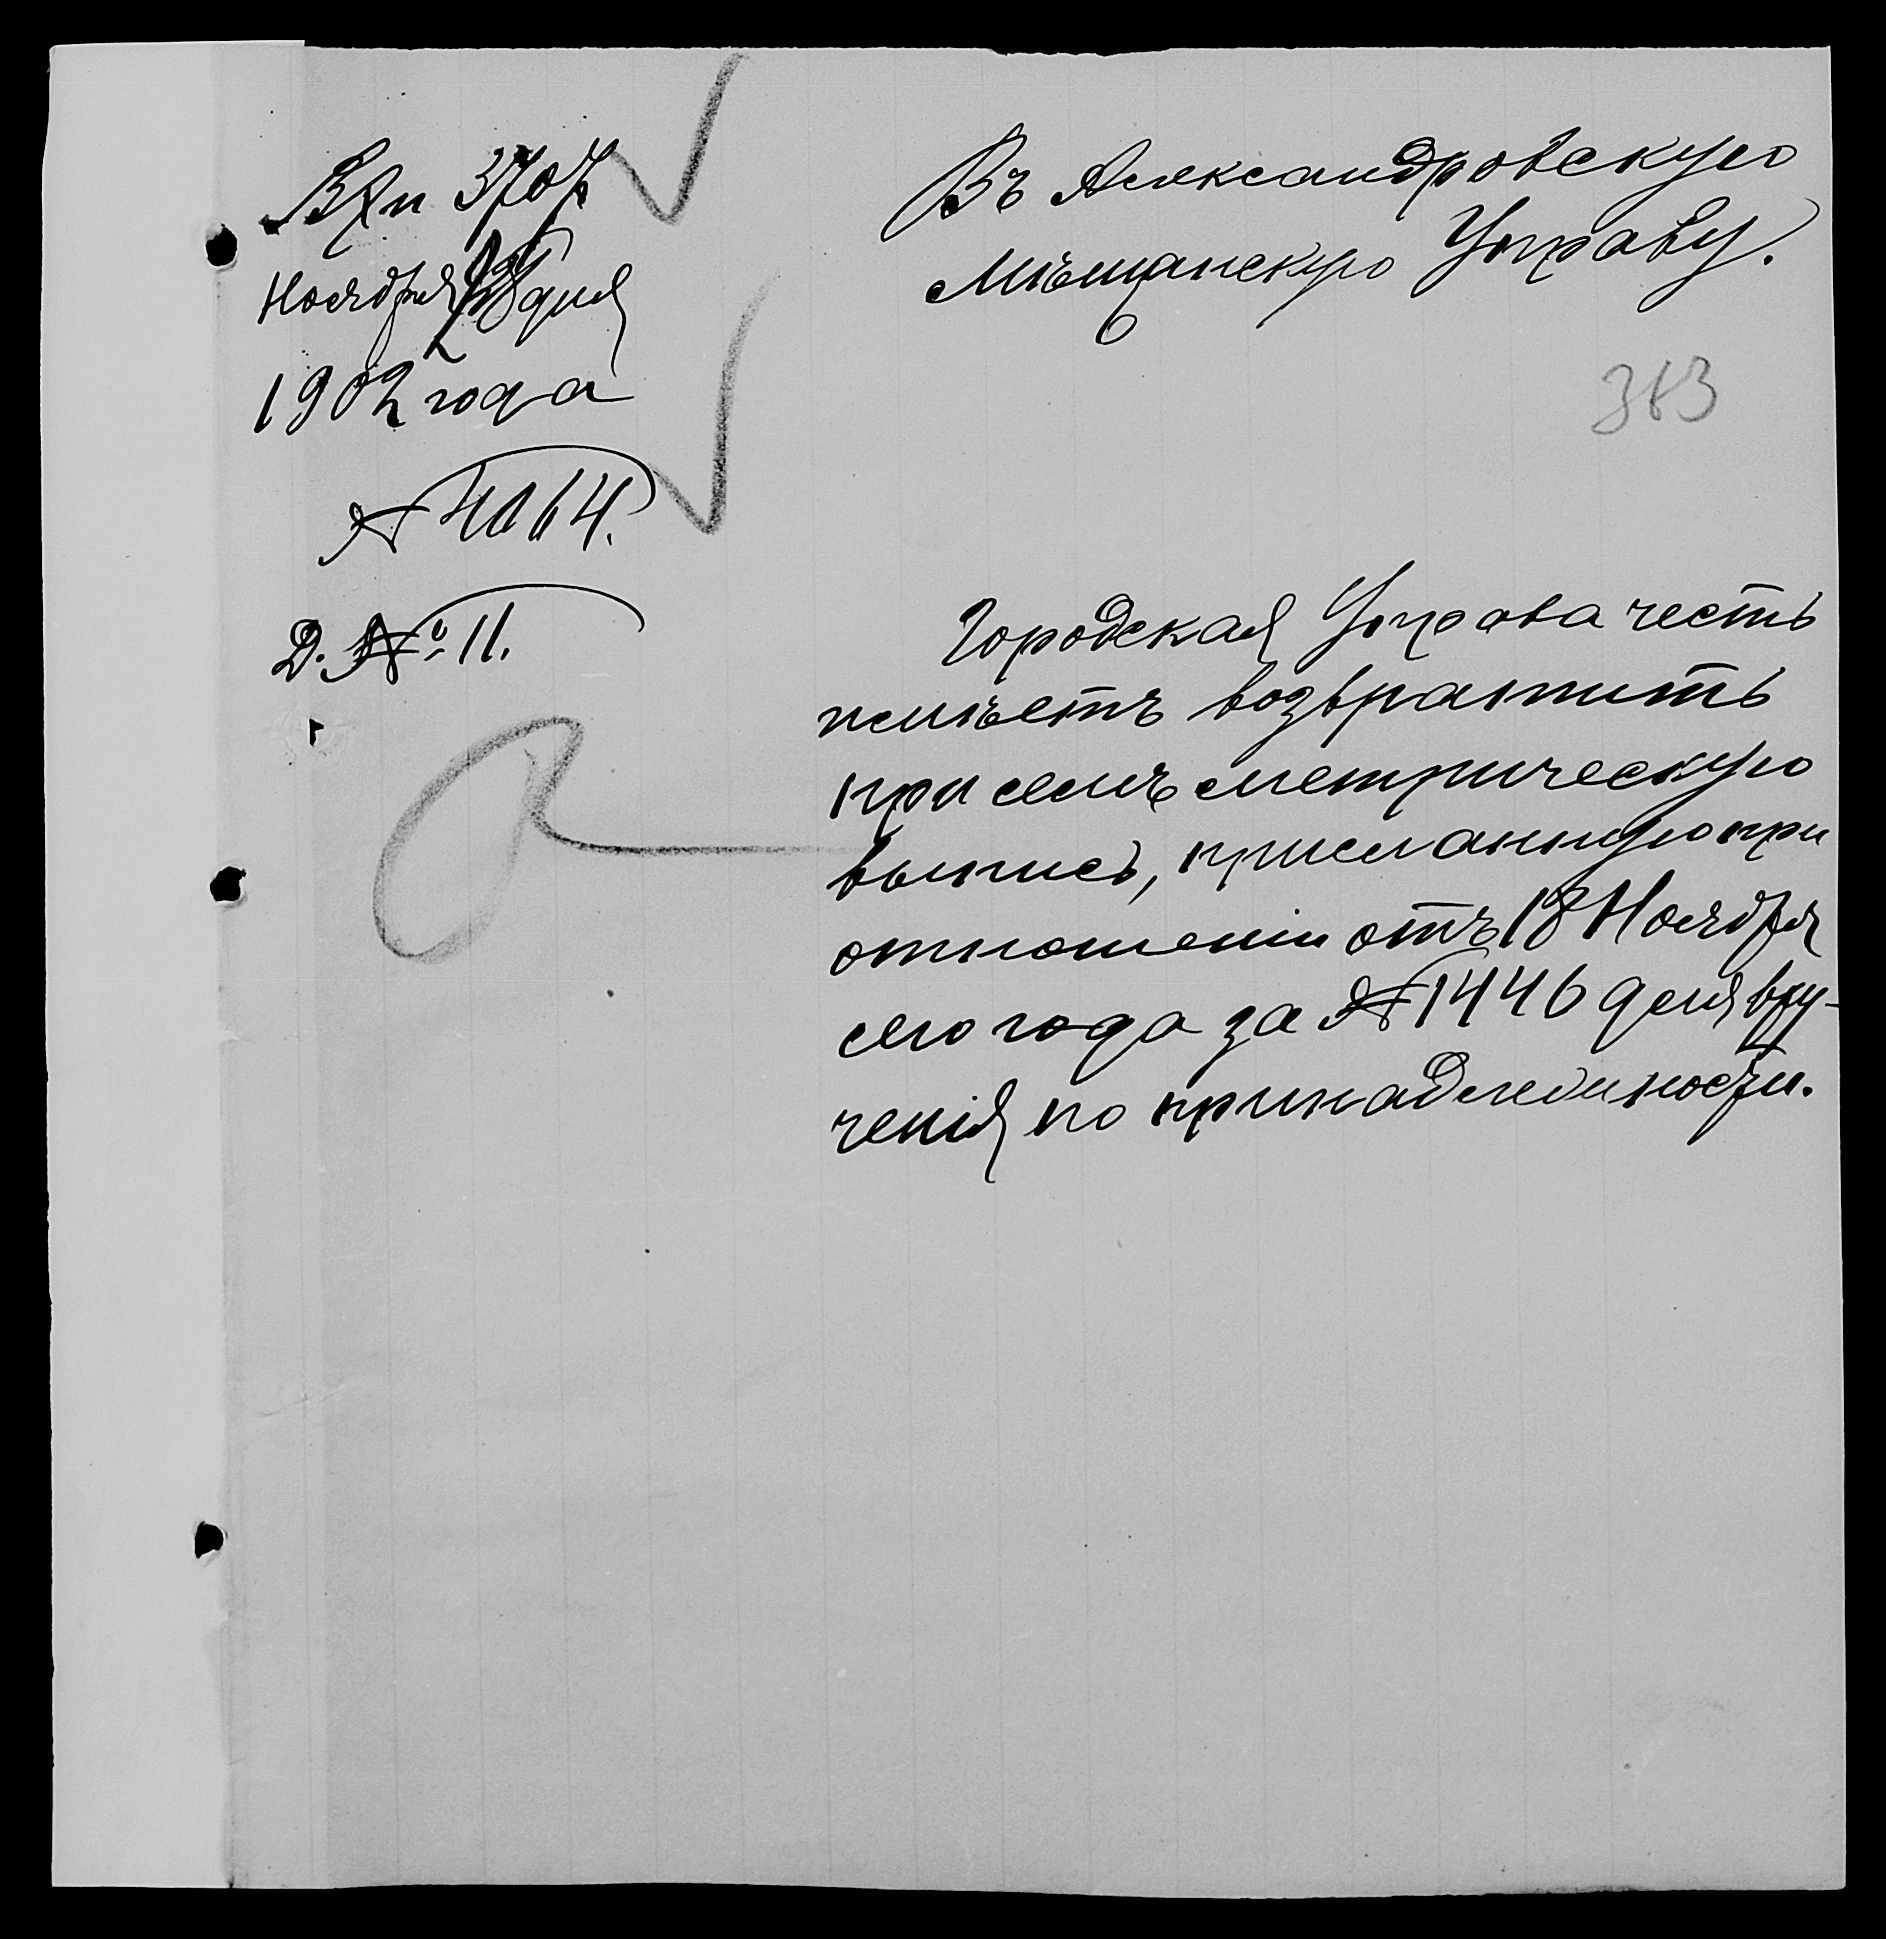 Вхп 3707
Ноября дня
1902 года
№ 4164.
Д. № 11.
Въ Александровскую
Мѣщанскую Управу.
383
Городская Управа честь
имѣетъ возвратить
при семъ метрическую
выпись, присланную при
отношеніи отъ 18 Ноября
сего года за № 1446 для вру-
ченія по принадлежности.